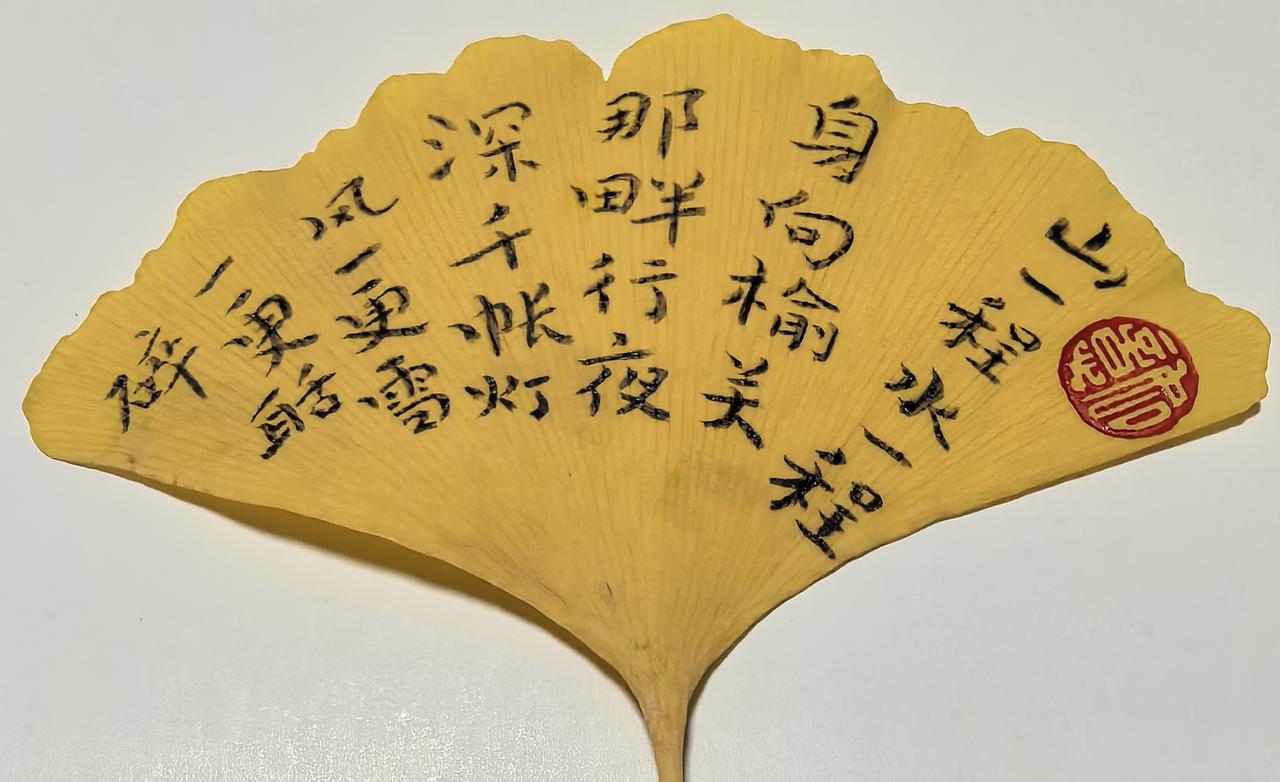 山一程水一程
身向榆关
那畔行夜
深千帐灯
风一更雪
一更聒
碎